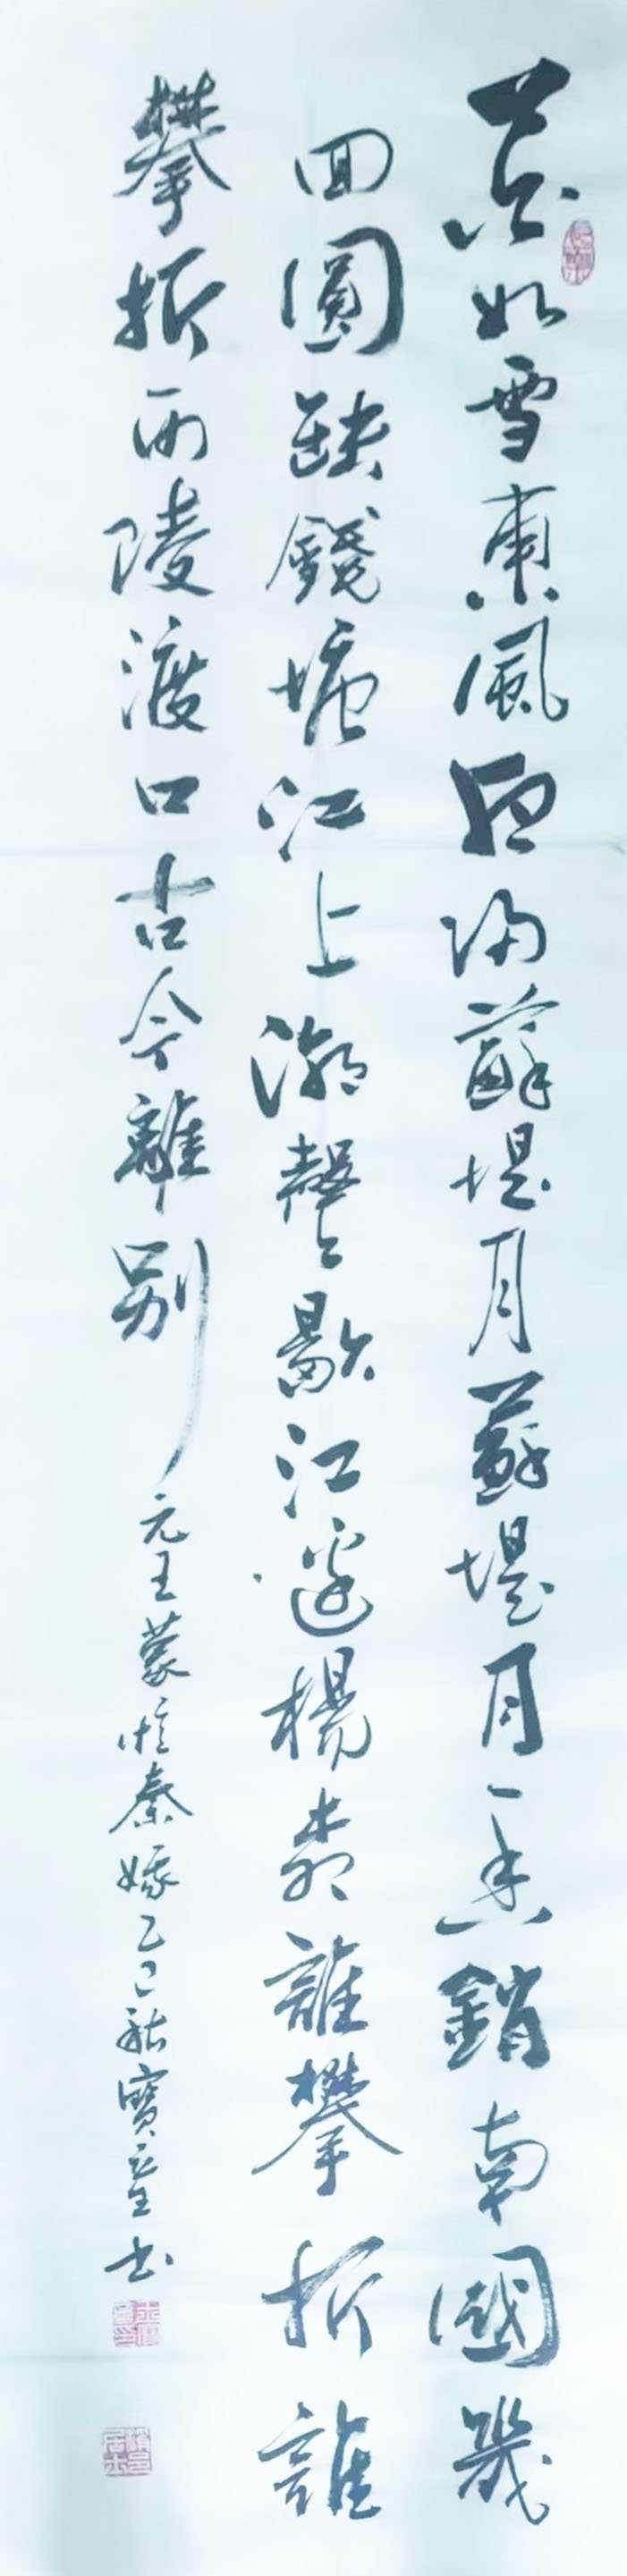 花如雪東風夜掃蘇堤月蘇堤月香銷南國幾
回圓缺錢塘江上潮聲歇江邊楊柳誰攀折誰
攀折西陵渡口古今離別
元王蒙憶秦娥乙巳秋寶童書